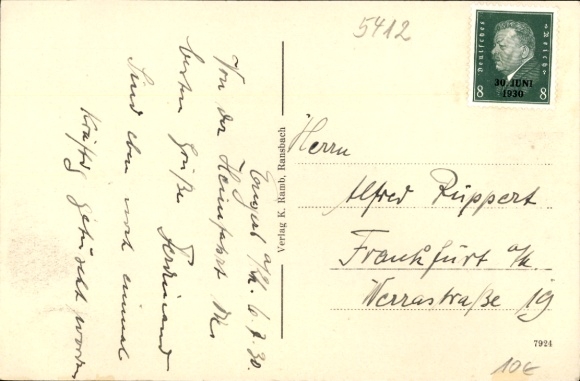 5412
Deutsches Reich
30. JUNI
1930
8 8
6.7.30.
Von der Heimfahrt
besten Grüße Ferdinand
Sind eben noch einmal
kräftig geduscht worden
Verlag K. Ramb, Ransbach
Herrn
Alfred Ruppert
Frankfurt a/M.
Werrastraße 19
7924
10€